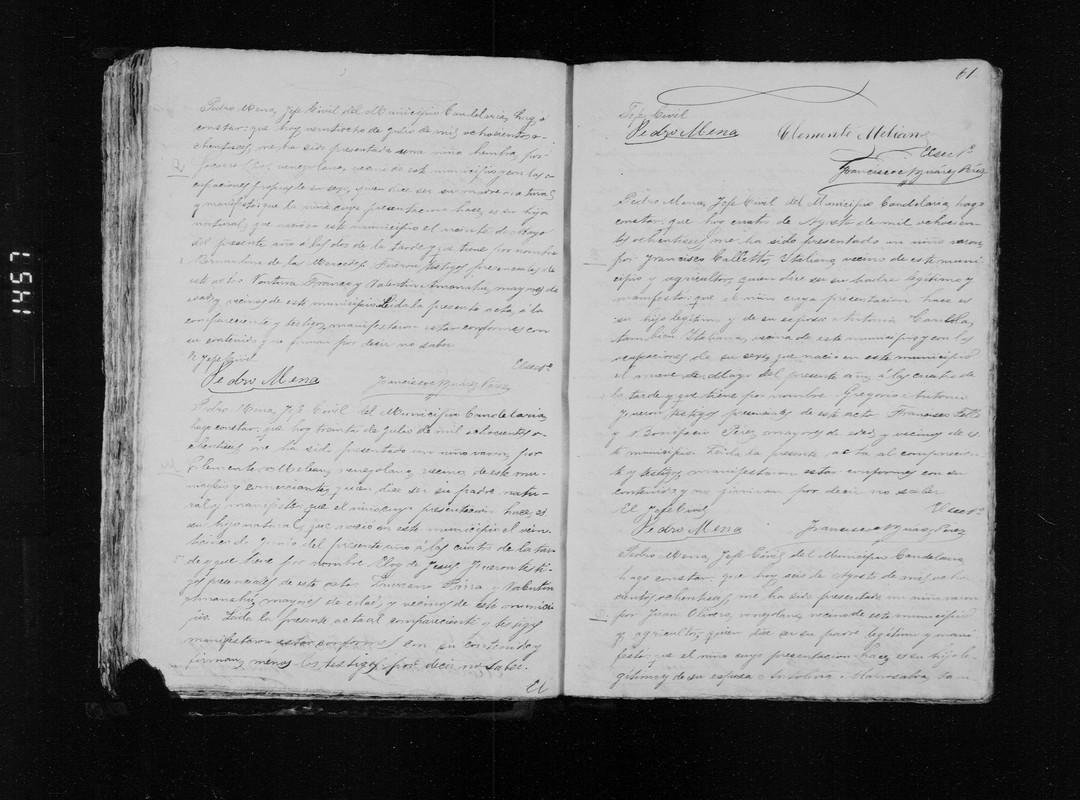 Pedro Mena, Jefe Civil del Municipio Candelaria, hago
constar: que hoy veintiocho de Julio de mil ochocientos o-
chentiseis, me ha sido presentada una niña hembra, por
venezolana, vecina de este municipio y con las o-
cupaciones propias de su sexo, quien dice ser su madre natural
y manifestó: que la niña cuya presentación hace, es su hija
natural, que nació en este municipio el veinte de Mayo
del presente año á las dos de la tarde y que tiene por nombre
Bernardina de las Mercedes. Fueron testigos presenciales de
este acto Ventura Franco y Valentin Amanahu, mayores de
edad y vecinos de este municipio. Leida la presente acta, á la
compareciente y testigos, manifestaron estar conformes con
su contenido, que firman por decir no saber
El Jefe Civil
El Secrº
Pedro Mena Francisco Pérez
Pedro Mena, Jefe Civil del Municipio Candelaria,
hago constar: que hoy treinta de Julio de mil ochocientos o-
chentiseis me ha sido presentado un niño varon, por
Clemente Melian, venezolano, vecino de este mu-
nicipio y comerciante, quien dice ser su padre natu-
ral y manifestó: que el niño cuya presentación hace, es
su hijo natural, que nació en este municipio el vein-
de Junio del presente año á las cuatro de la tar-
de y que tiene por nombre Eloy de Jesus. Fueron testi-
gos presenciales de este acto, y Valentin
Amanahú, mayores de edad, y vecinos de este munici-
pio. Leida la presente acta al compareciente y testigos
manifestaron estar conformes con su contenido y
firman, menos los testigos por decir no saber.
El
61
Jefe Civil
Pedro Mena Clemente Melian
El Secrº
Francisco Pérez
Pedro Mena, Jefe Civil del Municipio Candelaria, hago
constar: que hoy cuatro de Agosto de mil ochocien-
tos ochentiseis me ha sido presentado un niño varon,
por Francisco Calletto, Italiano, vecino de este muni-
cipio y agricultor, quien dice ser su padre legítimo y
manifestó: que el niño cuya presentacion hace es
su hijo legítimo y de su esposa Antonia
tambien Italiana, vecina de este municipio y con las
ocupaciones de su sexo, que nació en este municipio
el nueve de Mayo del presente año, á las cuatro de
la tarde y que tiene por nombre Gregorio Antonio
Fueron testigos presenciales de este acto Francisco
y Bonifacio Pérez, mayores de edad y vecinos de es-
te municipio. Leida la presente acta al comparecien-
te y testigos, manifestaron estar conformes con su
contenido y no firman por decir no saber
El Jefe Civil El Secrº
Pedro Mena Francisco Pérez
Pedro Mena, Jefe Civil del Municipio Candelaria
hago constar: que hoy seis de Agosto de mil ocho-
cientos ochentiseis, me ha sido presentado un niño varon
por Juan Olivero, venezolano, vecino de este municipio
y agricultor, quien dice ser su padre legítimo y mani-
festó: que el niño cuya presentacion hace, es su hijo le-
gítimo y de su esposa tam
1457